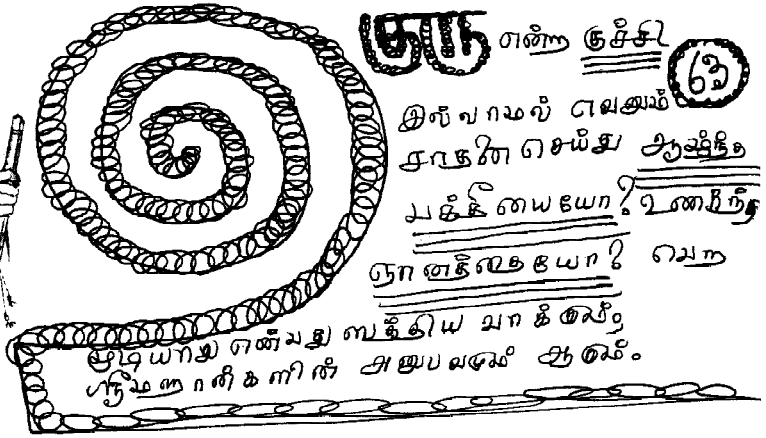 குரு என்ற குச்சி
63
இல்லாமல் எவனும்
சாதனை செய்து ஆழ்ந்த
பக்தியையோ? உணர்ந்த
ஞானத்தையோ? பெற
முடியாது என்பது ஸத்திய வாக்கும்,
ஸ்ரீமஹான்களின் அனுபவமும் ஆகும்.